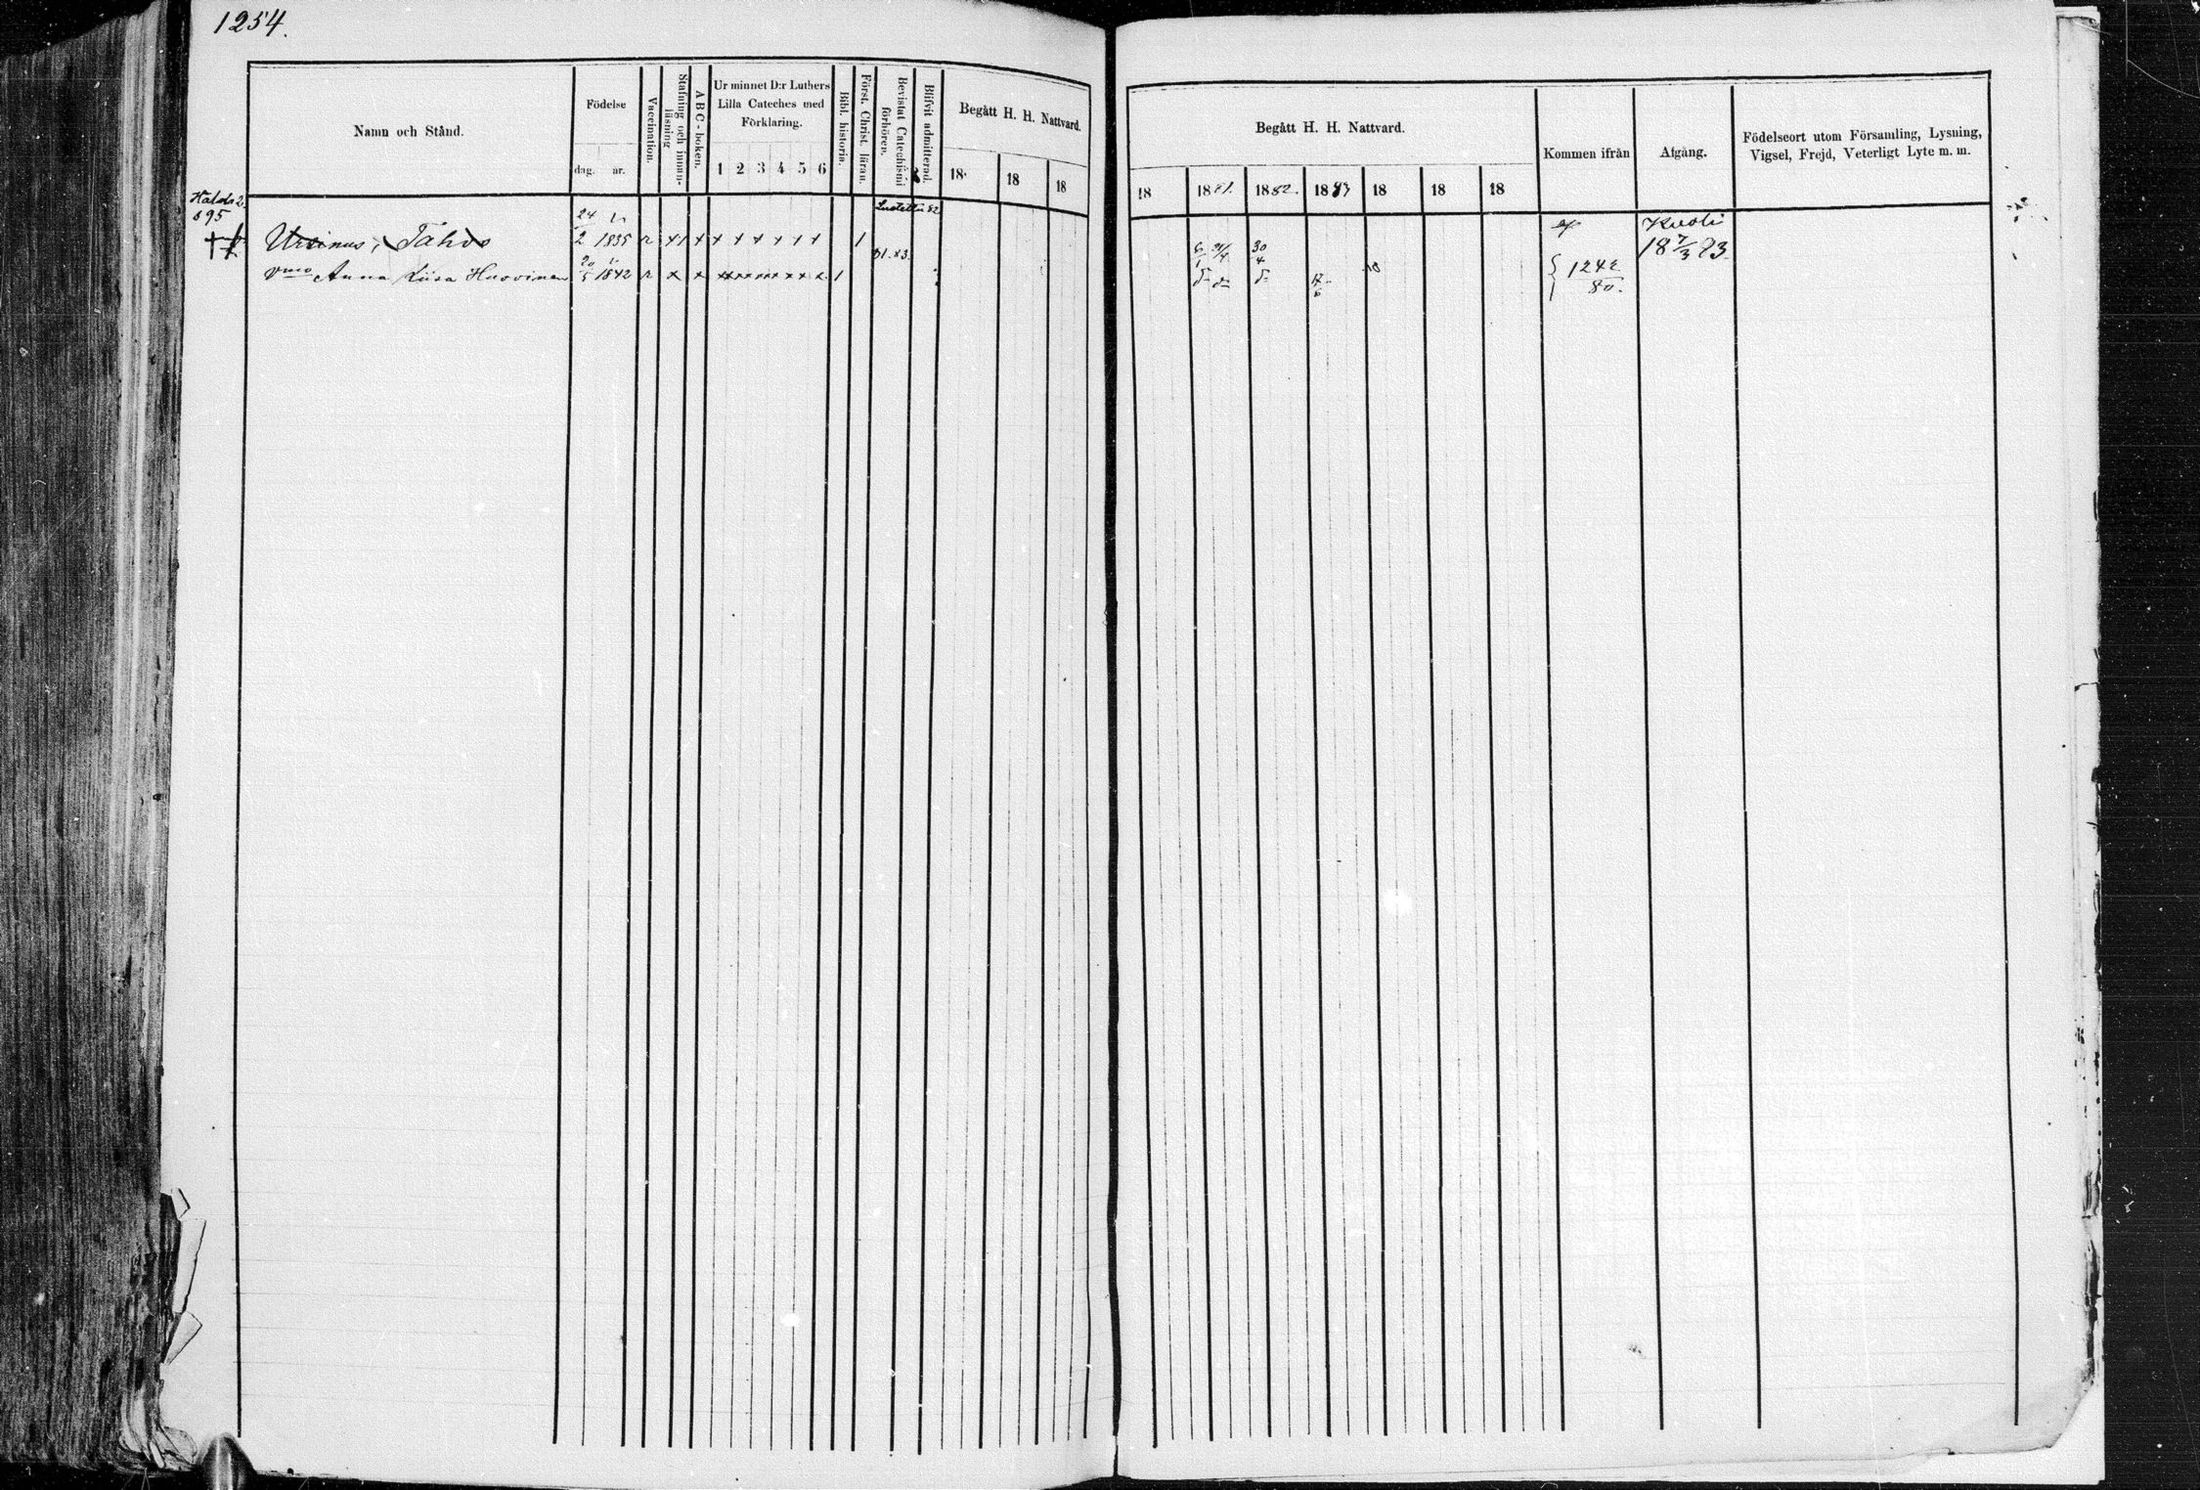 1254.
Namn och Stånd.
Födelse
dag. år.
Vaccination.
Stafning och innan-läsning
A B C - boken.
Ur minnet D:r Luthers
Lilla Cateches med
Förklaring.
1 2 3 4 5 6
Bibl. historia.
Först. Christ. läran.
Bevistat Catechismi förhören.
Blifvit admitterad.
Begått H. H. Nattvard.
18 18 18
Begått H. H. Nattvard.
18 1881. 1882. 1883 18 18 18
Kommen ifrån
Afgång.
Födelseort utom Församling, Lysning,
Vigsel, Frejd, Veterligt Lyte m. m.
895
Ursinus, Tahvo
24/2 1835 r x1 x x x x x x x 1 81.83
6/1 30/4
Kuoli
18 7/3 83
vmo Anna Liisa Huovinen
20/5 1842 r x x 1
17/6
1242
80.